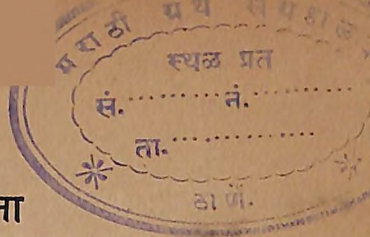 मराठी ग्रंथ संग्रहालय
स्थळ प्रत
सं. ............ नं. ............
ता. ................
ठाणें.